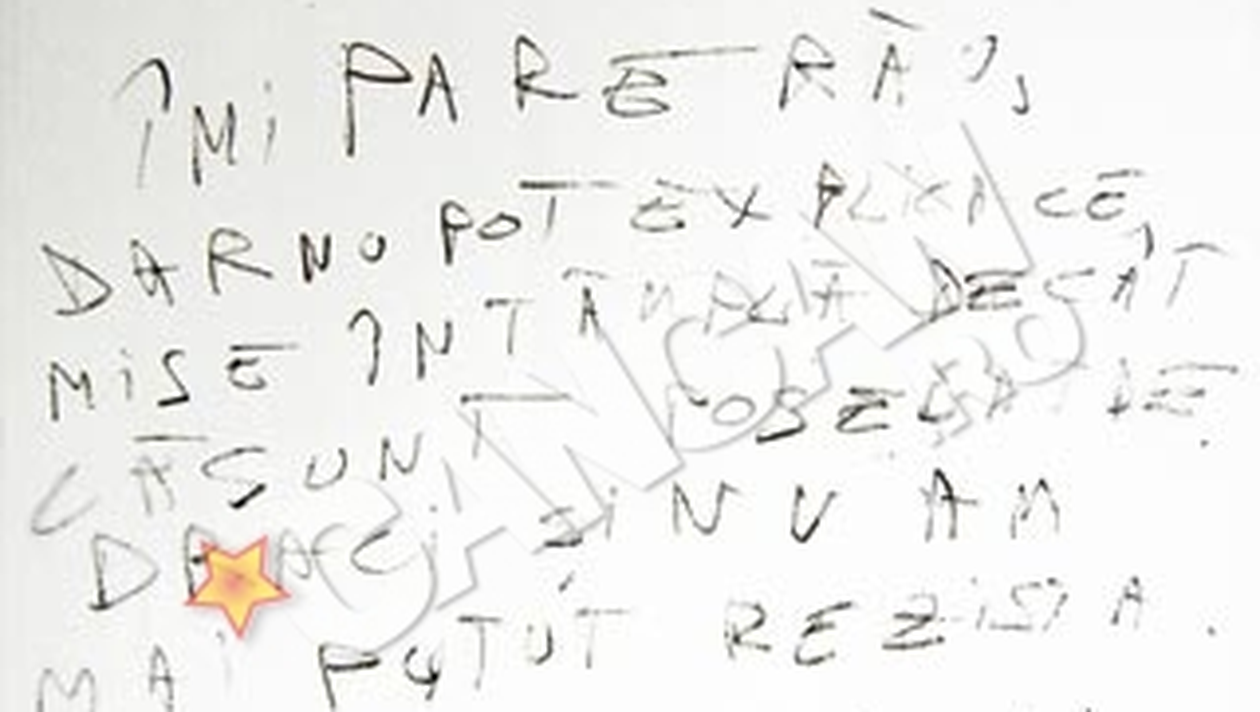 ÎMI PARE RĂU,
DAR NU POT EXPLICA CE
MI SE ÎNTÂMPLĂ DECÂT
CĂ SUNT POSEDAT DE
DRACI ȘI NU AM
MAI PUTUT REZISTA.
CANCAN